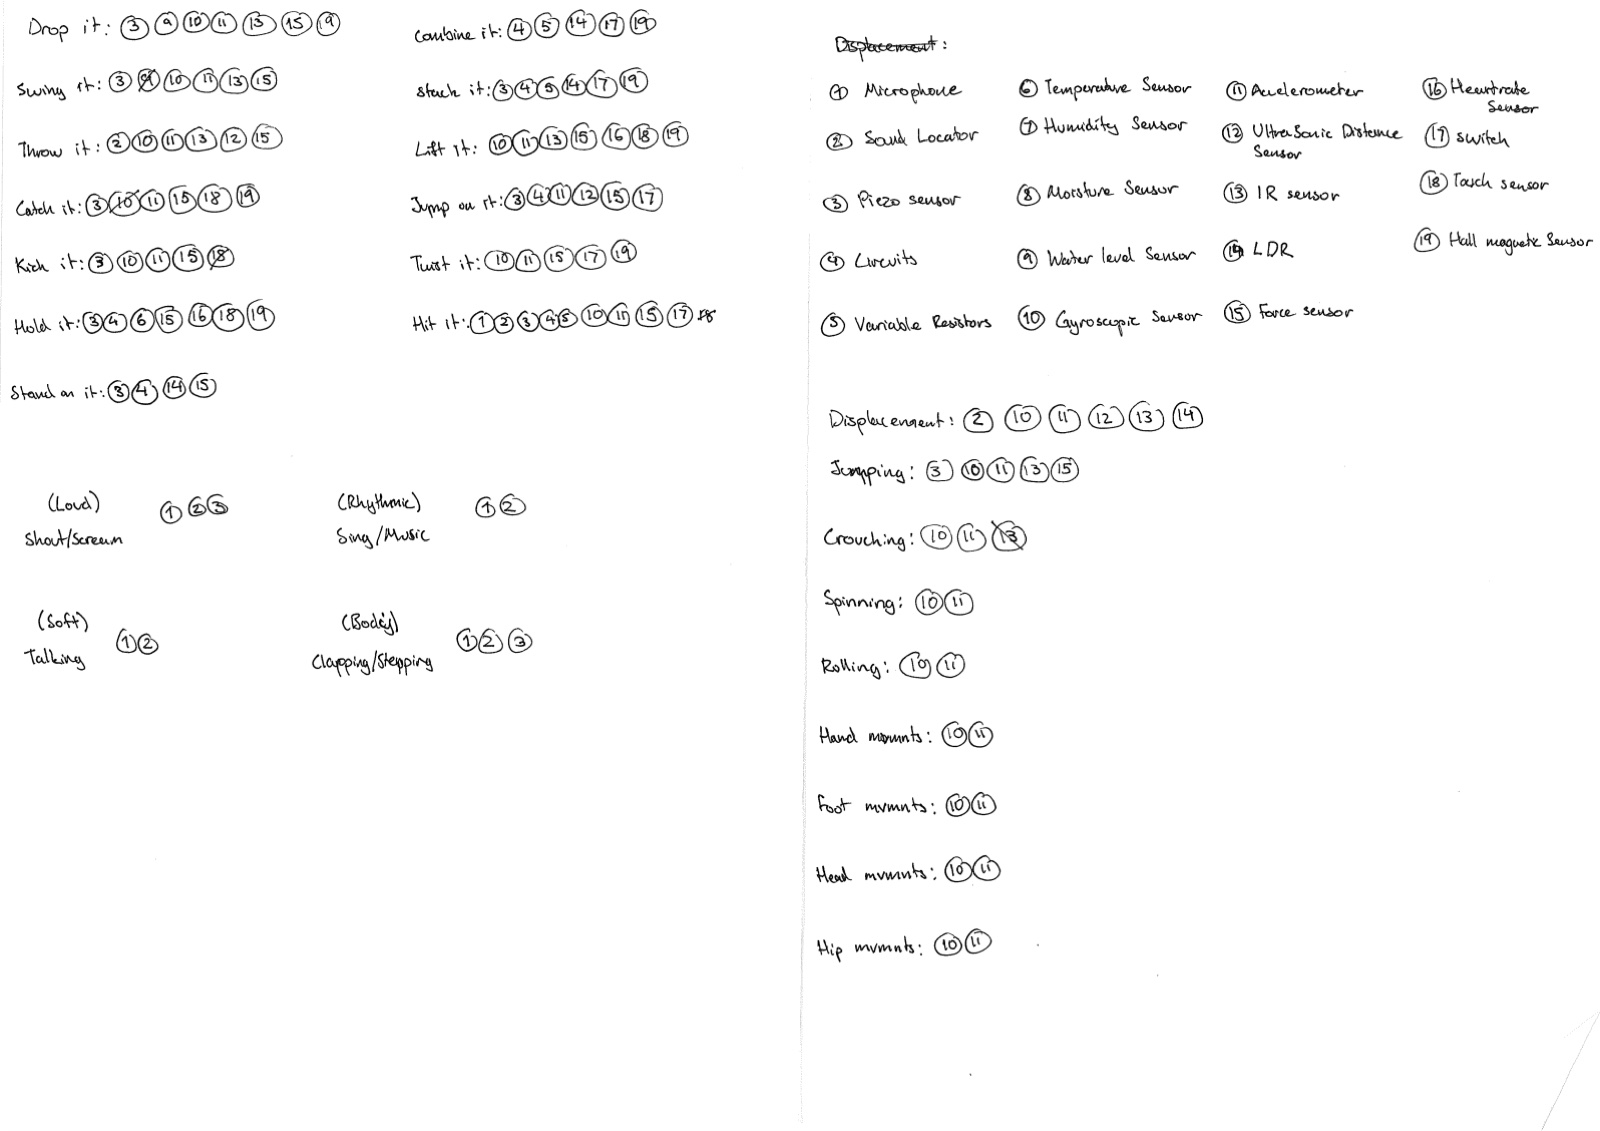 Drop it: ③ ⑨ ⑩ ⑪ ⑬ ⑮ ⑲
Swing it: ③ ⑨ ⑩ ⑪ ⑬ ⑮
Throw it: ② ⑩ ⑪ ⑬ ⑫ ⑮
Catch it: ③ ⑩ ⑪ ⑮ ⑱ ⑲
Kick it: ③ ⑩ ⑪ ⑮ ⑱
Hold it: ③ ④ ⑥ ⑮ ⑯ ⑱ ⑲
Stand on it: ③ ④ ⑭ ⑮
Combine it: ④ ⑤ ⑭ ⑰ ⑲
Stack it: ③ ④ ⑤ ⑭ ⑰ ⑲
Lift it: ⑩ ⑪ ⑬ ⑮ ⑯ ⑱ ⑲
Jump on it: ③ ④ ⑪ ⑫ ⑮ ⑰
Twist it: ⑩ ⑪ ⑮ ⑰ ⑲
Hit it: ① ② ③ ④ ⑤ ⑩ ⑪ ⑮ ⑰ 18
(Loud) ① ② ③
Shout/Scream
(Rhythmic) ① ②
Sing/Music
(Soft) ① ②
Talking
(Body) ① ② ③
Clapping/Stepping
Displacement:
① Microphone
② Sound Locator
③ Piezo sensor
④ Circuits
⑤ Variable Resistors
⑥ Temperature Sensor
⑦ Humidity Sensor
⑧ Moisture Sensor
⑨ Water level Sensor
⑩ Gyroscopic Sensor
⑪ Accelerometer
⑫ UltraSonic Distance
Sensor
⑬ IR sensor
⑭ LDR
⑮ Force sensor
⑯ Heartrate
Sensor
⑰ switch
⑱ Touch sensor
⑲ Hall magnetic Sensor
Displacement: ② ⑩ ⑪ ⑫ ⑬ ⑭
Jumping: ③ ⑩ ⑪ ⑬ ⑮
Crouching: ⑩ ⑪ ⑬
Spinning: ⑩ ⑪
Rolling: ⑩ ⑪
Hand mvmnts: ⑩ ⑪
Foot mvmnts: ⑩ ⑪
Head mvmnts: ⑩ ⑪
Hip mvmnts: ⑩ ⑪